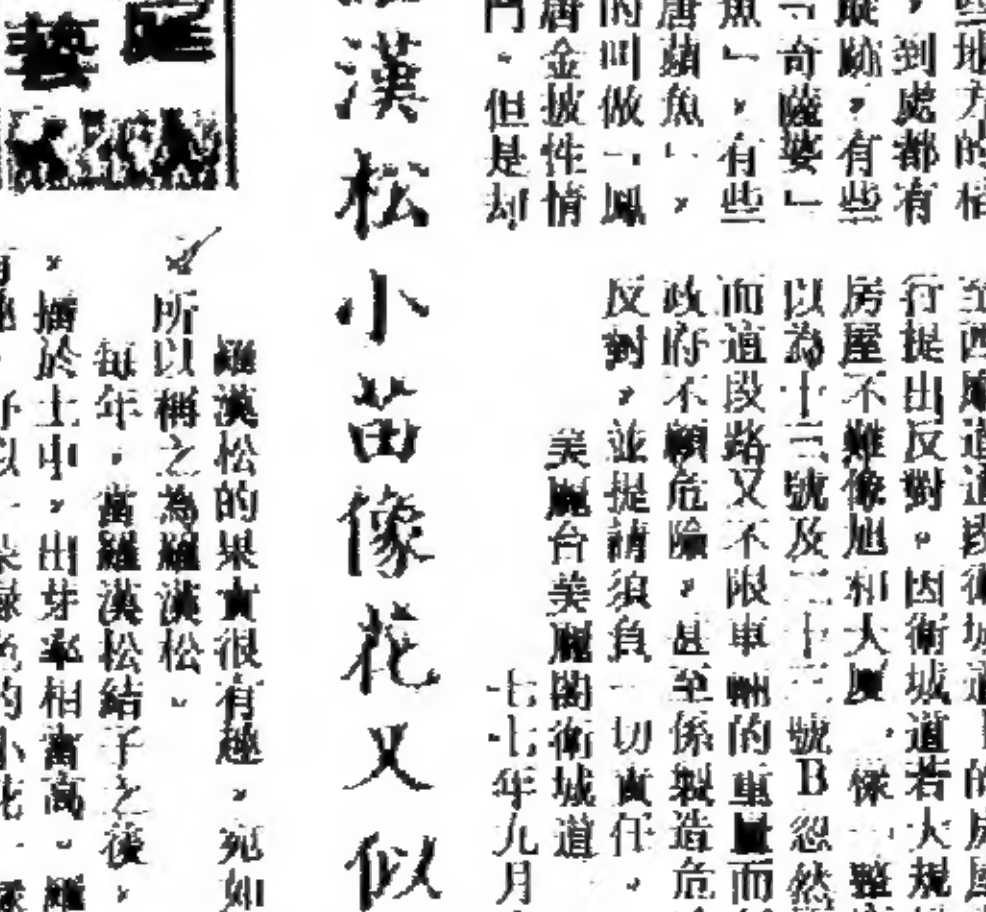 些地方的
，到處都有
蹤跡，有些
「奇薩婆」
魚」，有些
唐蘋魚」，
的叫做「鳳
唐金披性情
門。但是却
至西摩道道段衛城道的房屋
行提出反對。因衛城道若大規
房屋不難像旭和大厦，樣一整
以為十三號及二十三號B忽然
而道段路又不限車輛的重量而
政府不顧危險，甚至係製造危
反對，並提請須負一切責任。
美麗台美麗閣衛城道
七七年九月
漢松小苗像花又似
羅漢松的果實很有趣，宛如
所以稱之為羅漢松。
每年，當羅漢松結子之後，
，播於土中，出芽率相當高。羅
，好似一朵綠色的小花
藝